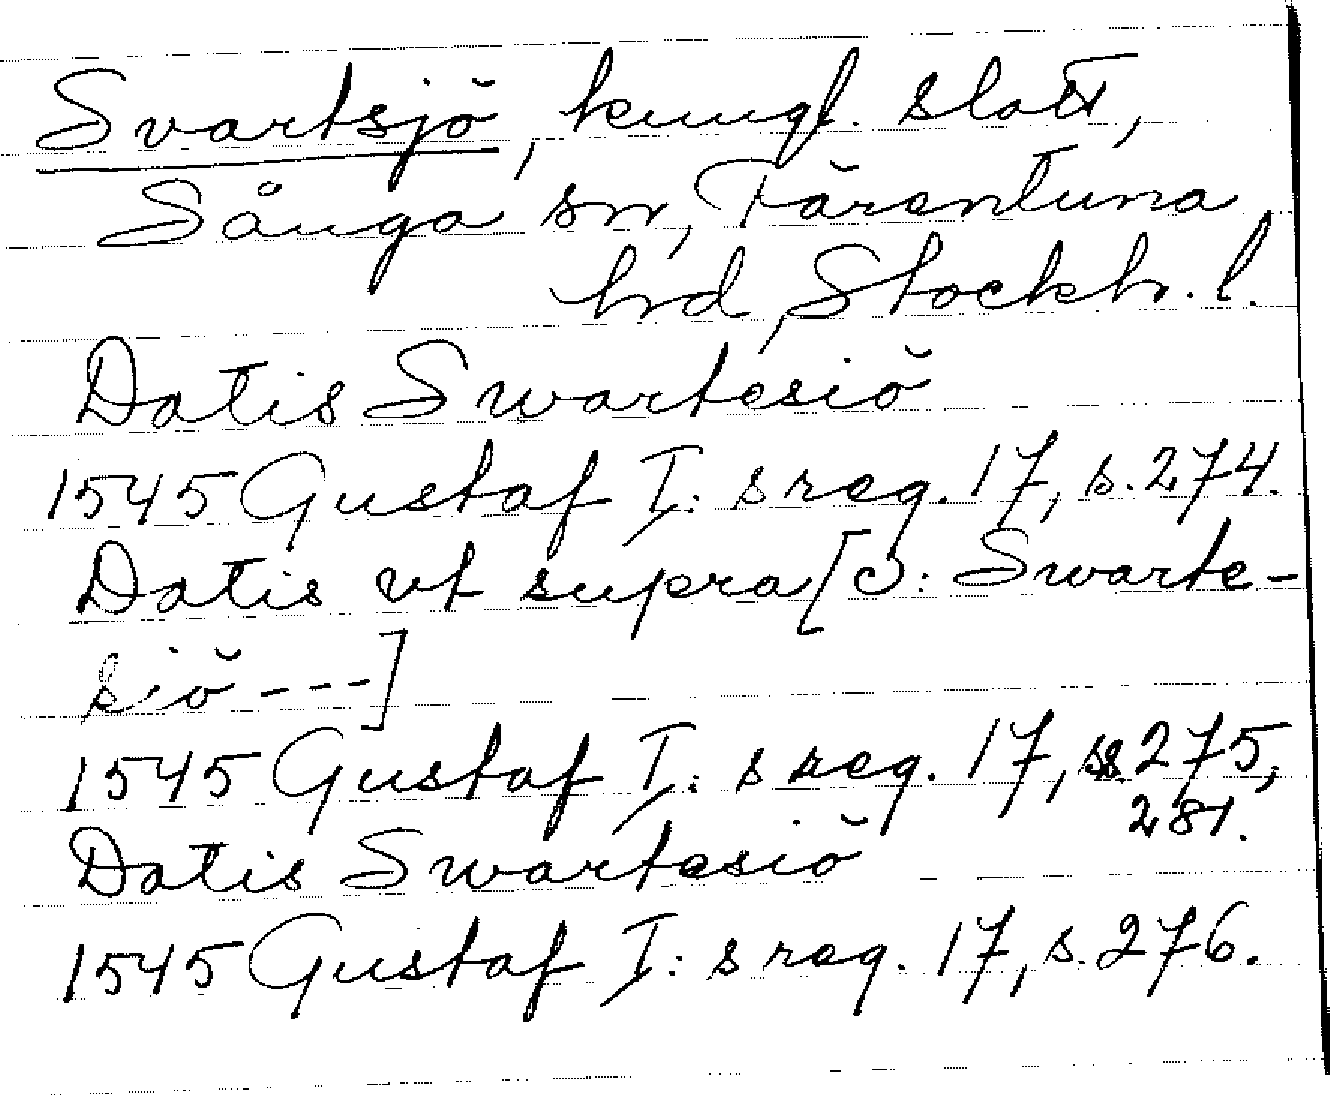 Svartsjö, kungl. slott,
Sånga sn, Färentuna
hd, Stockh. l.
Datis Swartesiö
1545 Gustaf I:s reg. 17, s. 274.
Datis vt supra [ɔ: Swarte-
siö ---]
1545 Gustaf I:s reg. 17, ss 275,
281.
Datis Swartesiö
1545 Gustaf I:s reg. 17, s. 276.